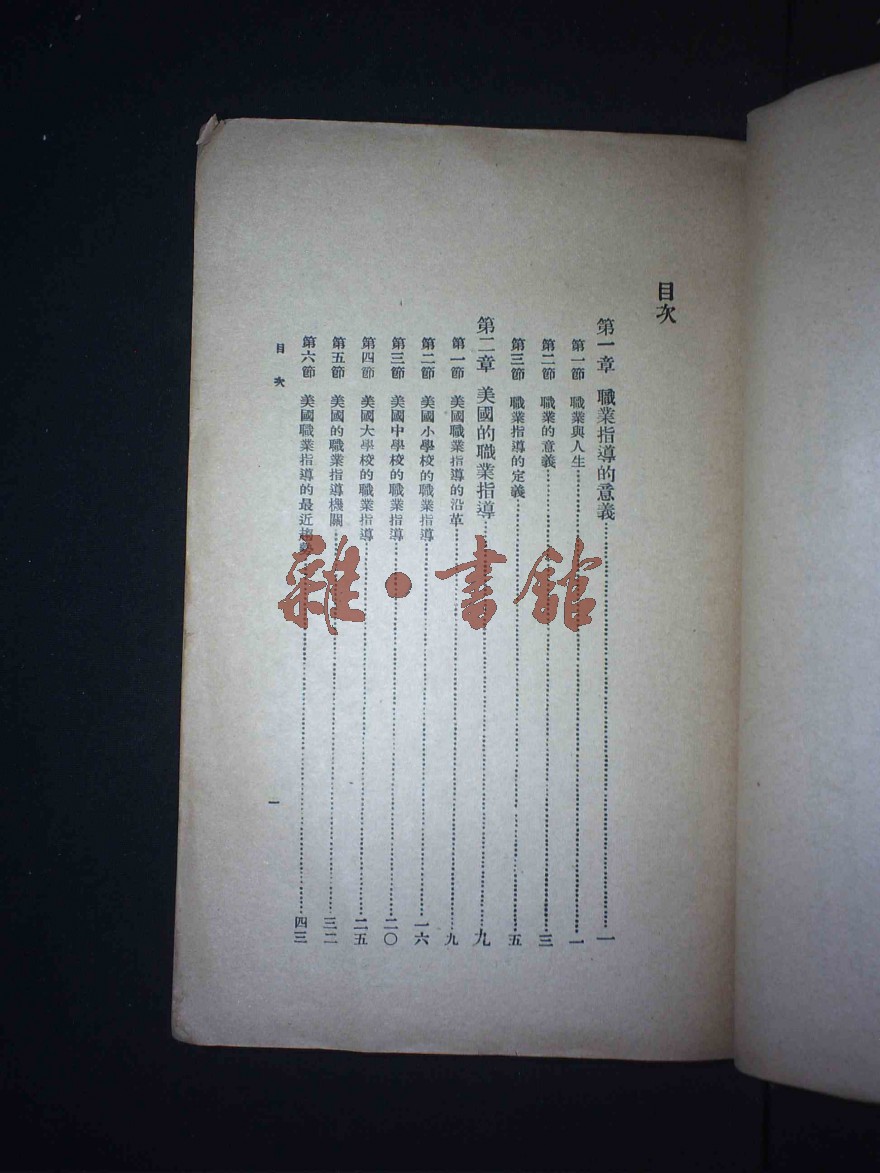 目次
第一章 職業指導的意義……一
第一節 職業與人生……一
第二節 職業的意義……三
第三節 職業指導的定義……五
第二章 美國的職業指導……九
第一節 美國職業指導的沿革……九
第二節 美國小學校的職業指導……一六
第三節 美國中學校的職業指導……二〇
第四節 美國大學校的職業指導……二五
第五節 美國的職業指導機關……三二
第六節 美國職業指導的最近趨勢……四三
目次
一
雜·書館